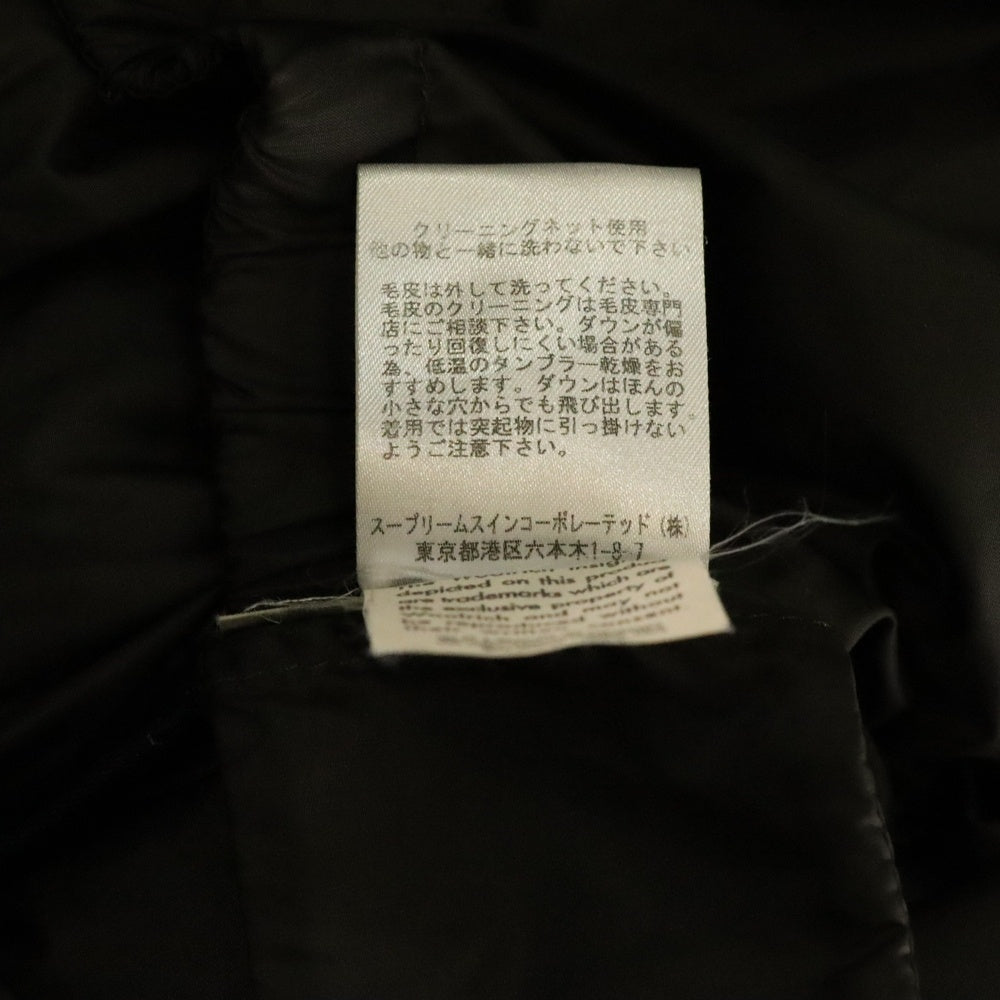 クリーニングネット使用
他の物と一緒に洗わないで下さい
毛皮は外して洗ってください。
毛皮のクリーニングは毛皮専門
店にご相談下さい。ダウンが偏
ったり回復しにくい場合がある
為、低温のタンブラー乾燥をお
すすめします。ダウンはほんの
小さな穴からでも飛び出します。
着用では突起物に引っ掛けない
ようご注意下さい。
スープリームスインコーポレーテッド(株)
東京都港区六本木1-8-7
The Woolrich insignia
depicted on this product
are trademarks which are
the exclusive property of
Woolrich and may not
without